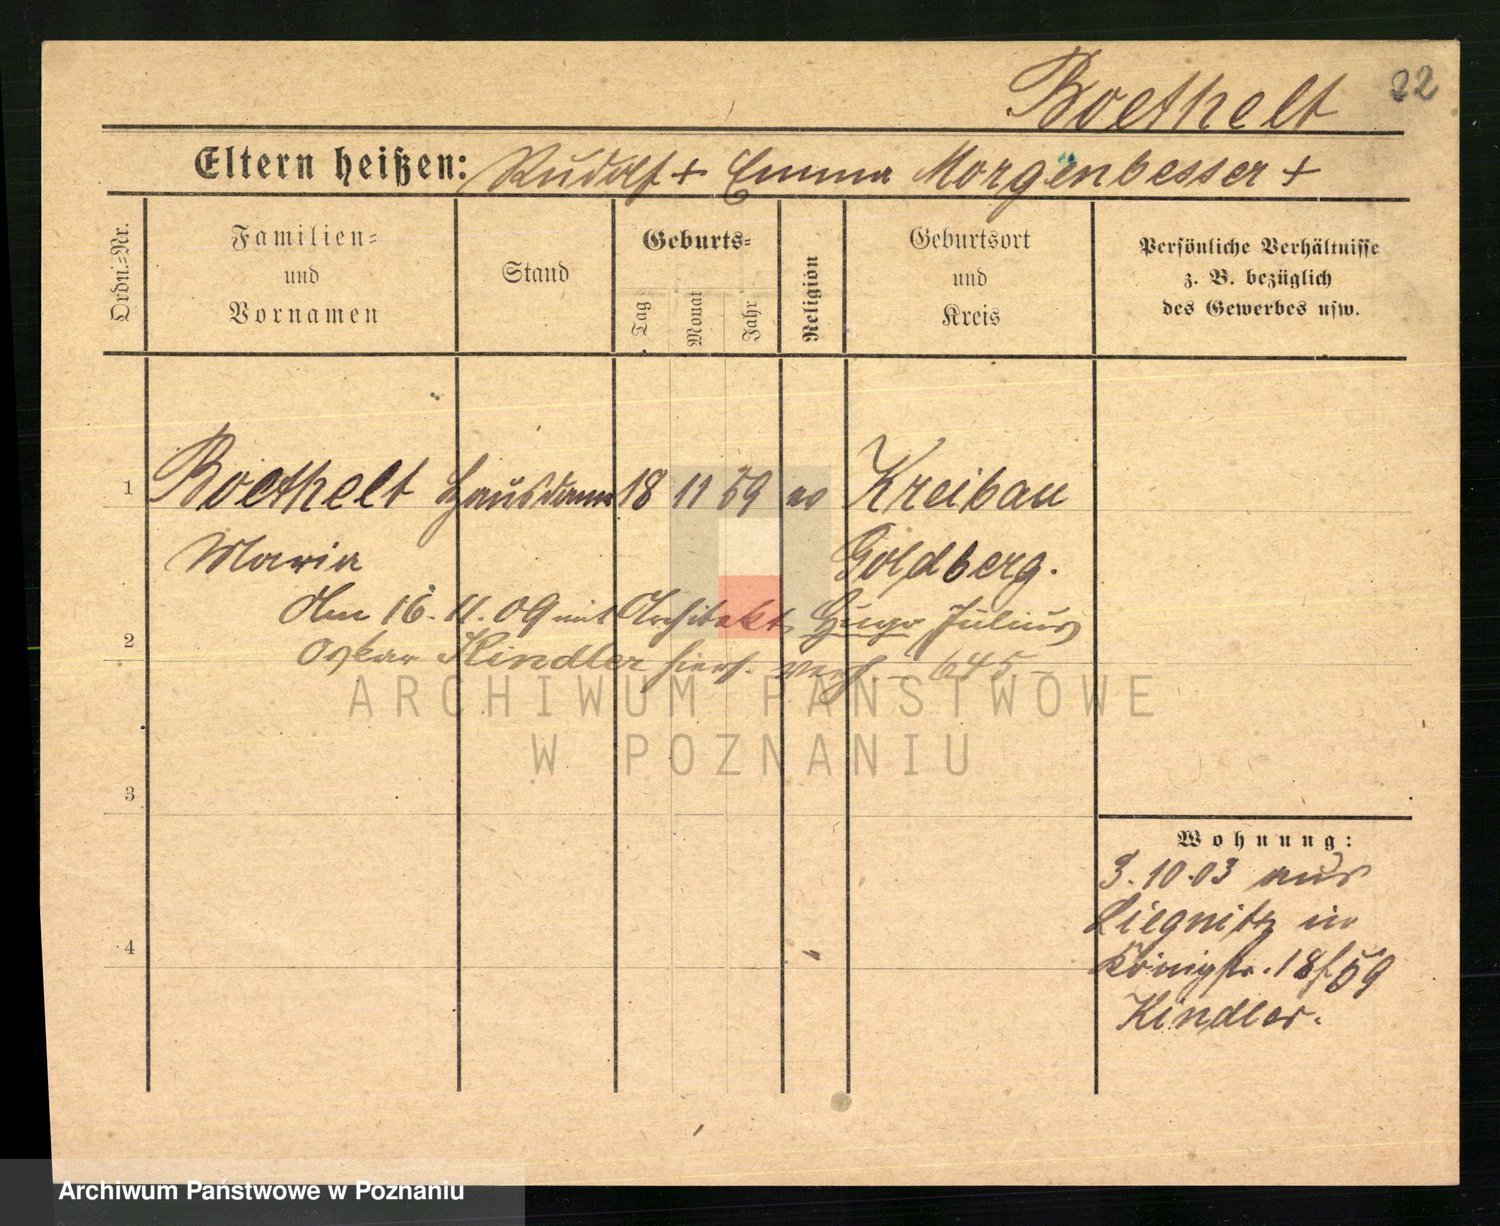 Boethelt 22
Eltern heißen: Rudolf + Emma Morgenbesser +
Ordn.-Nr.
Familien-
und
Vornamen
Stand
Geburts-
Tag
Monat
Jahr
Religion
Geburtsort
und
Kreis
Persönliche Verhältnisse
z. B. bezüglich
des Gewerbes usw.
1 Boethelt Hausdame 18 11 59 ev Kreibau
Maria Goldberg.
Am 16. 11. 09 mit Architekt Hugo Julius
2
Oskar Kindler hier verh. - 645 -
ARCHIWUM PAŃSTWOWE
W POZNANIU
3
Wohnung:
3.10.03 aus
Liegnitz in
4
Königstr. 18 f 59
Kindler.
Archiwum Państwowe w Poznaniu